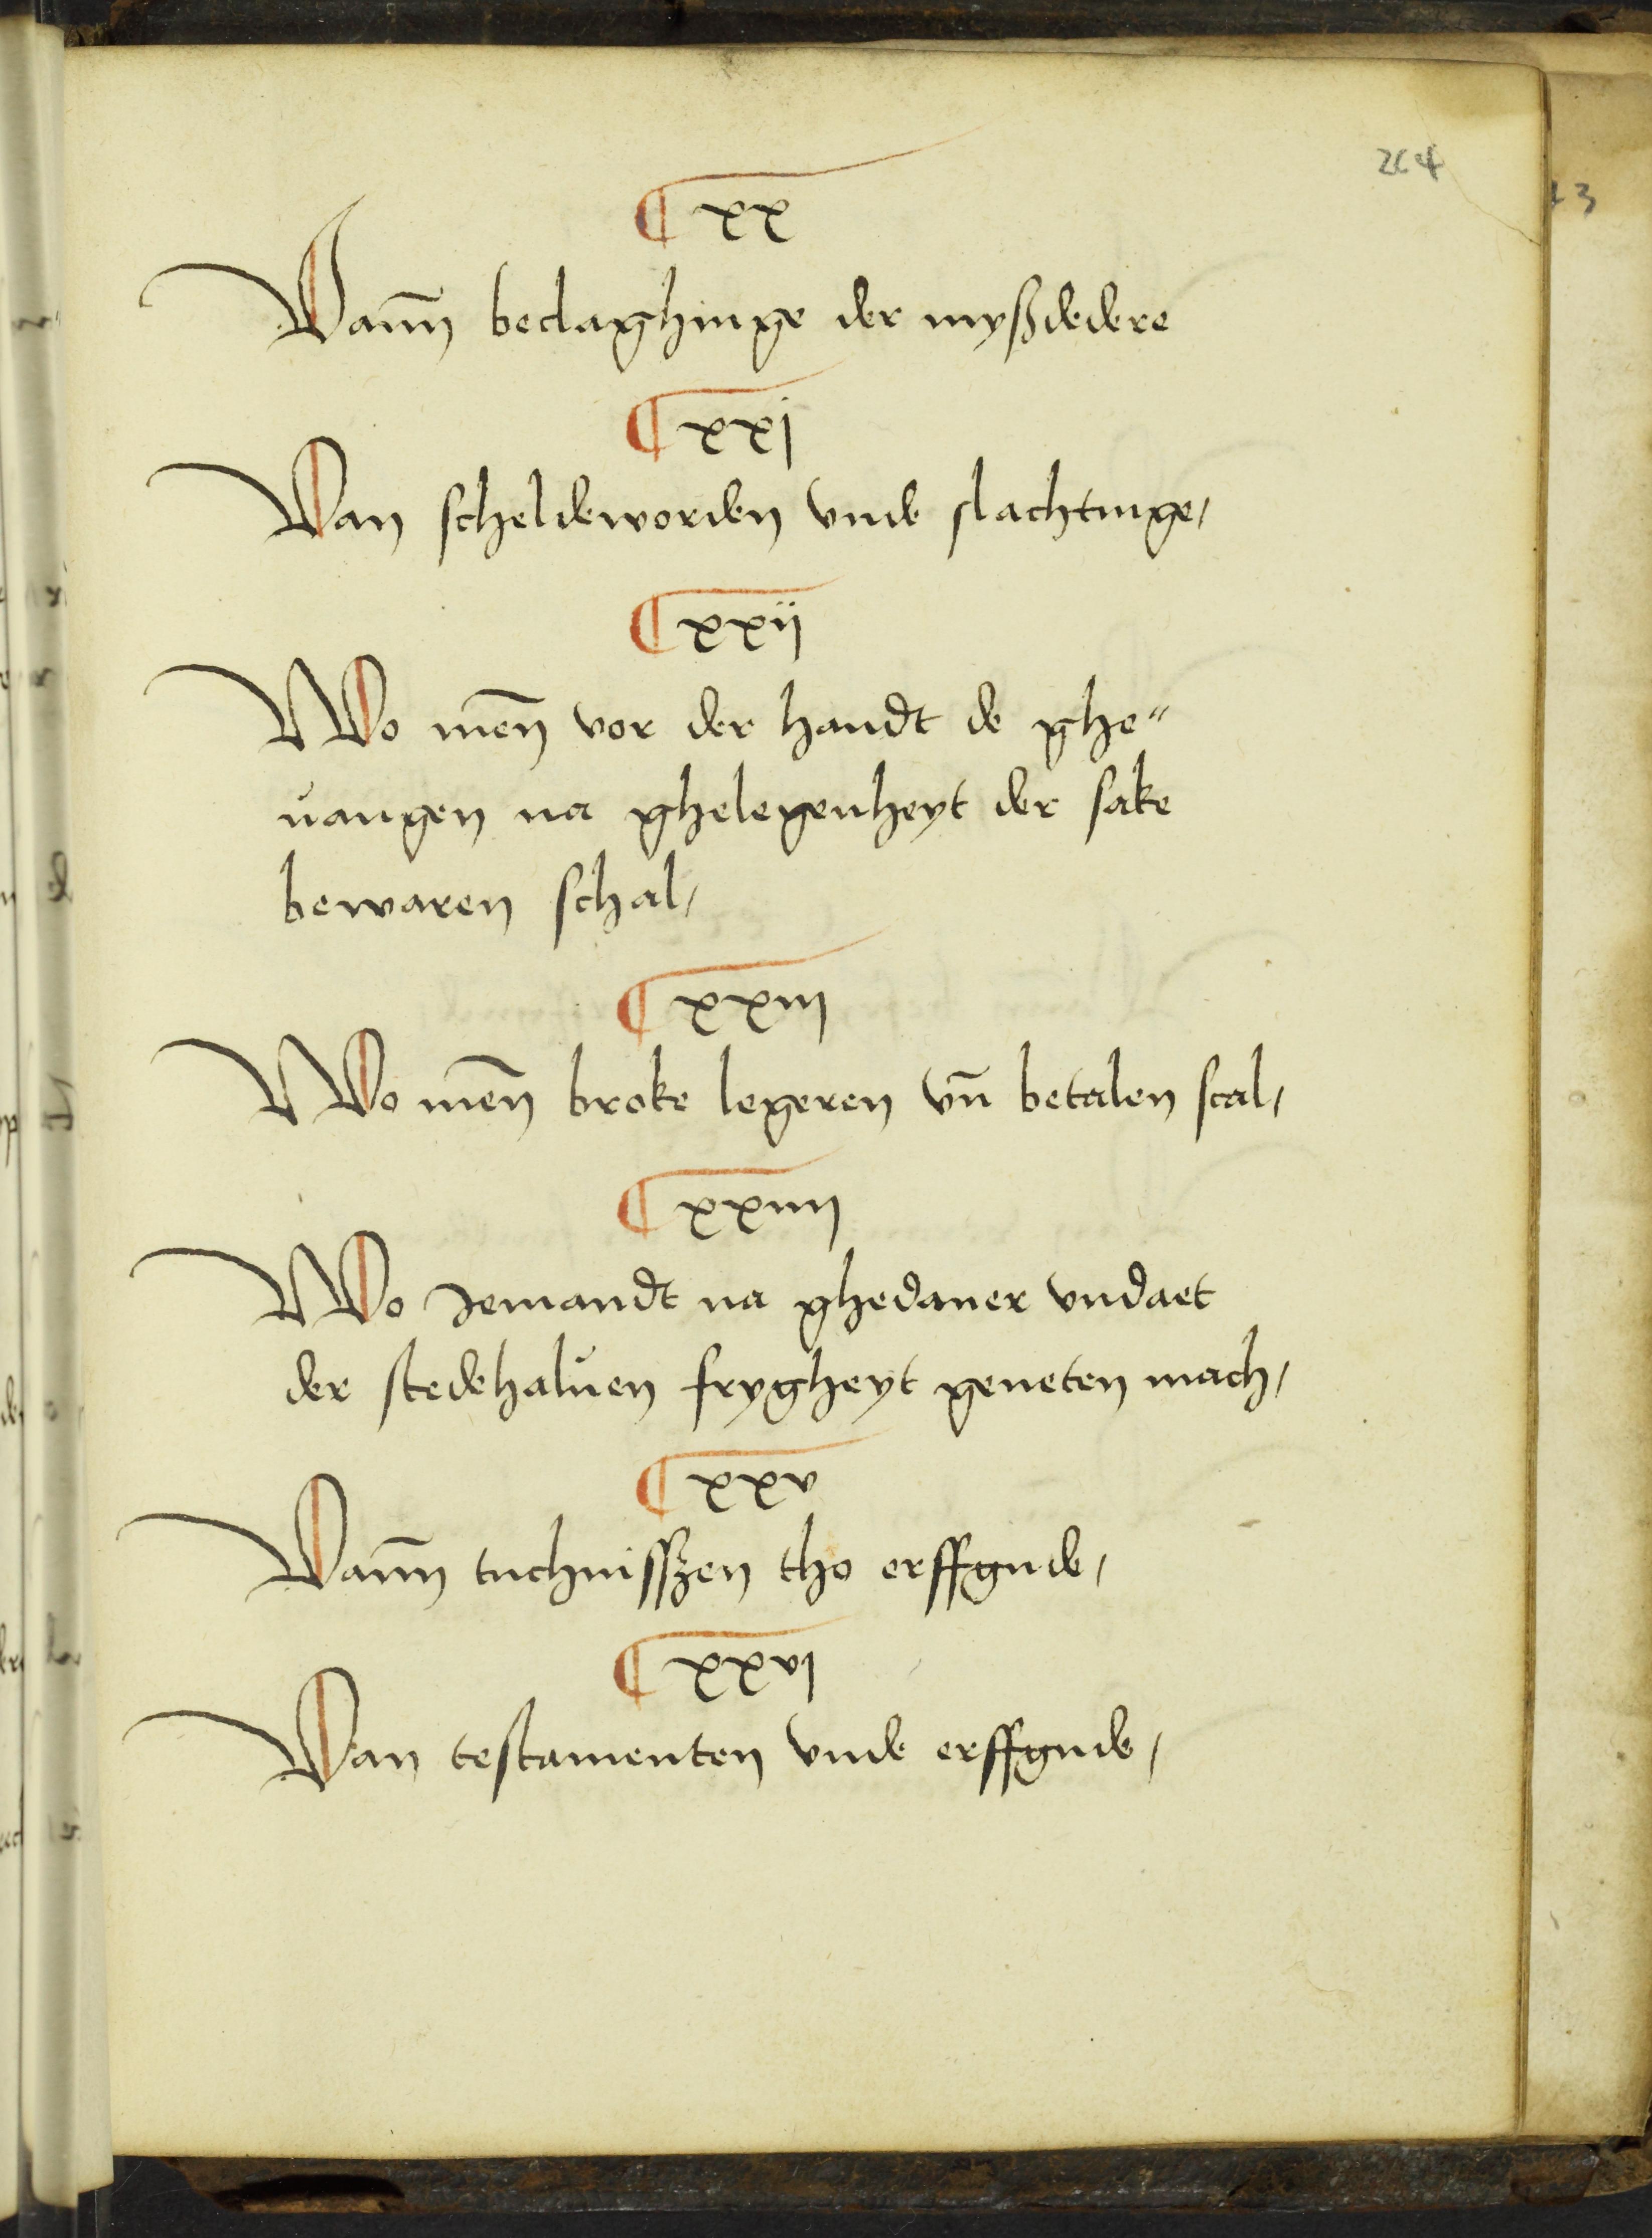 264
¶ xx
Vann̄ beclaghinge der myßdedere
¶ xxj
Van scheldeworden vnde slachtinge,
¶ xxii
Wo men̄ vor der handt de ghe"
uangen na ghelegenheyt der sake
bewaren schal,
¶ xxiii
Wo men̄ broke legeren vn̄ betalen scal,
¶ xxiiii
Wo Jemandt na ghedaner vndaet
der stedehaluen frygheyt geneten mach,
¶ xxv
Vann̄ tuchnisszen tho erffgude,
¶ xxvi
Van testamenten vnde erffgude,